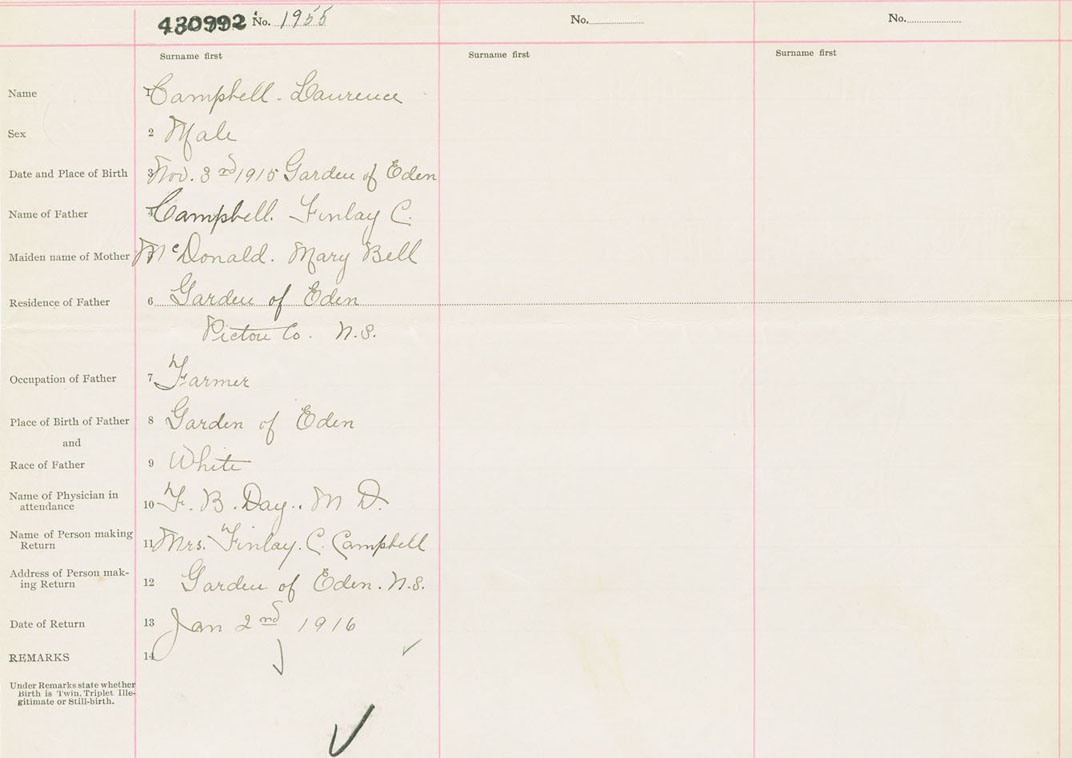 430992 No. 1955 No. No.
Surname first Surname first Surname first
Name 1 Campbell. Laurence
Sex 2 Male
Date and Place of Birth 3 Nov. 3rd 1915 Garden of Eden
Name of Father 4 Campbell. Finlay C.
Maiden name of Mother McDonald. Mary Bell
Residence of Father 6 Garden of Eden
Pictou Co. N.S.
Occupation of Father 7 Farmer
Place of Birth of Father 8 Garden of Eden
and
Race of Father 9 White
Name of Physician in
attendance 10 F. B. Day.. M D.
Name of Person making
Return 11 Mrs. Finlay. C. Campbell
Address of Person mak-
ing Return 12 Garden of Eden. N.S.
Date of Return 13 Jan 2nd 1916
REMARKS 14
Under Remarks state whether
Birth is Twin, Triplet Ille-
gitimate or Still-birth.